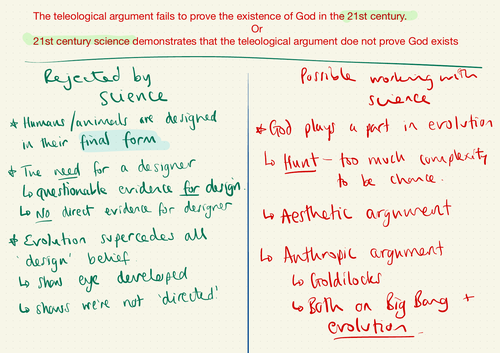 The teleological argument fails to prove the existence of God in the 21st century.
Or
21st century science demonstrates that the teleological argument doe not prove God exists
Rejected by
science
* Humans/animals are designed
in their final form
* The need for a designer
↳ questionable evidence for design.
↳ No direct evidence for designer
* Evolution supercedes all
'design' belief
↳ shows eye developed
↳ shows we're not 'directed'
Possible working with
science
* God plays a part in evolution
↳ Hunt - too much complexity
to be chance.
↳ Aesthetic argument
↳ Anthropic argument
↳ Goldilocks
↳ Both on Big Bang +
evolution